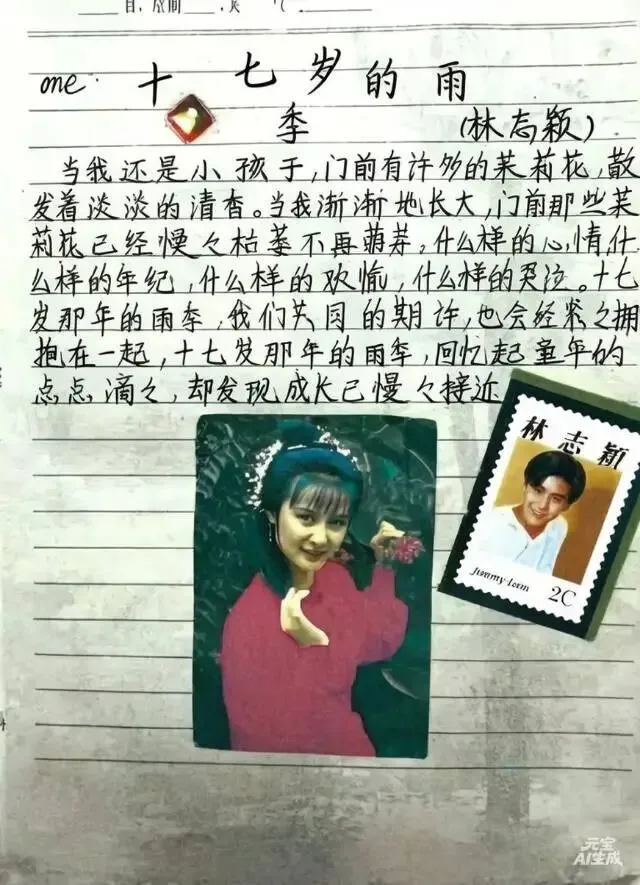 one. 十七岁的雨
季 (林志颖)
当我还是小孩子,门前有许多的茉莉花,散
发着淡淡的清香。当我渐渐地长大,门前那些茉
莉花已经慢々枯萎不再萌芽,什么样的心情什
么样的年纪,什么样的欢愉,什么样的哭泣。十七
岁那年的雨季,我们共同的期许,也会经紧々拥
抱在一起,十七岁那年的雨季,回忆起童年的
点点滴々,却发现成长已慢々接近
林志颖
2C
元宝
AI生成